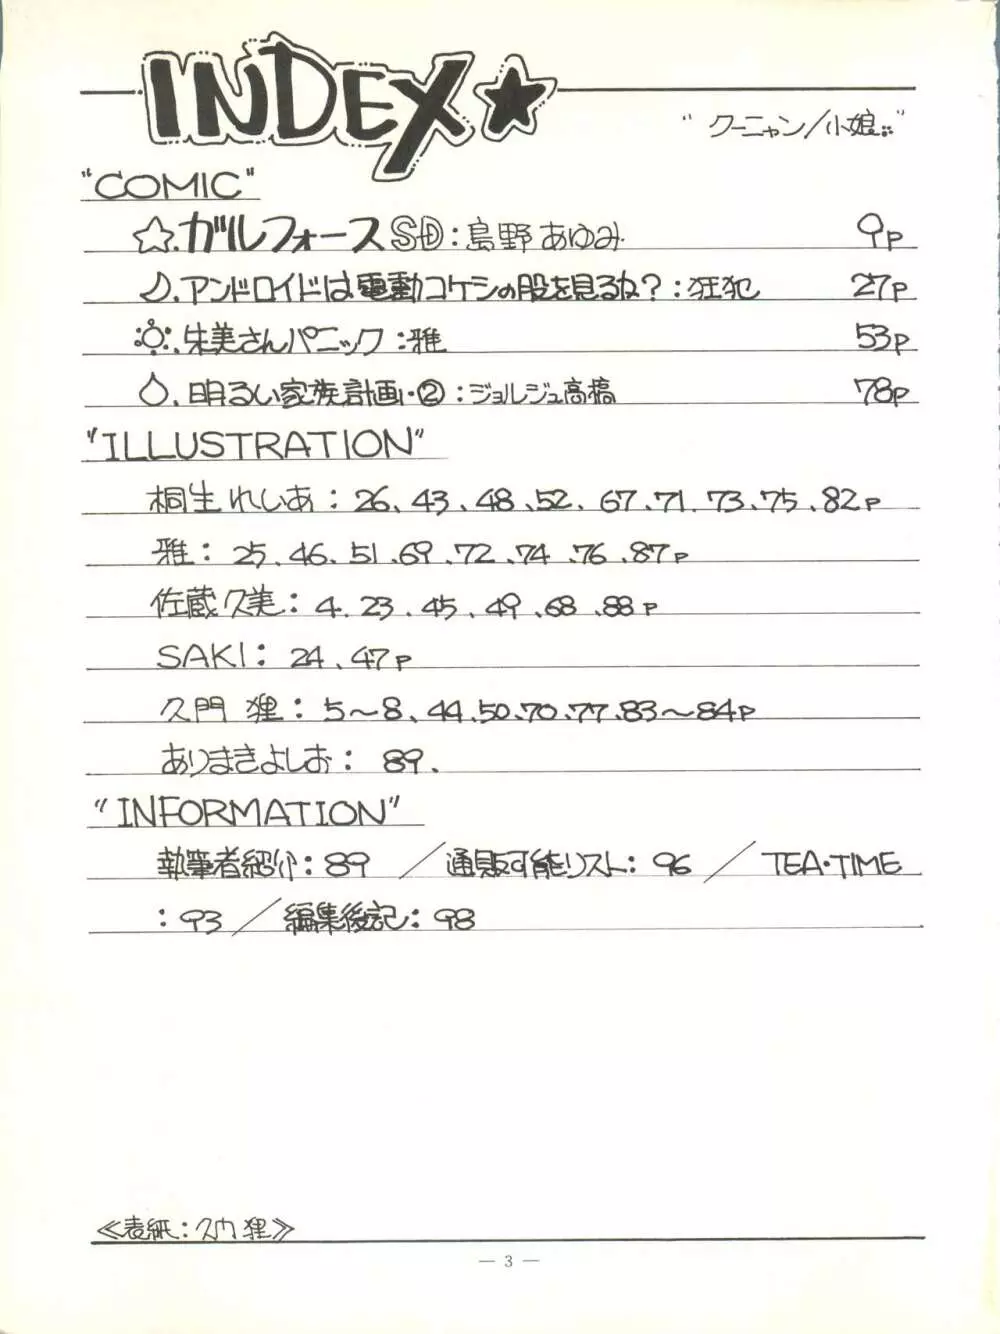 INDEX★
"クーニャン/小娘"
"COMIC"
☆.ガルフォースSD:島野あゆみ 9p
♪.アンドロイドは電動コケシの股を見るか?:狂犯 27p
.朱美さんパニック:雅 53p
.明るい家族計画・②:ジョルジュ高橋 78p
"ILLUSTRATION"
桐生れいあ:26、43、48、52、67、71、73、75、82p
雅:25、46、51、69、72、74、76、87p
佐蔵久美:4、23、45、49、68、88p
SAKI:24、47p
久門 狸:5〜8、44、50、70、77、83〜84p
ありまきよしお:89.
"INFORMATION"
執筆者紹介:89 /通販可能リスト:96 / TEA・TIME
:93 /編集後記:98
≪表紙:久門 狸≫
— 3 —